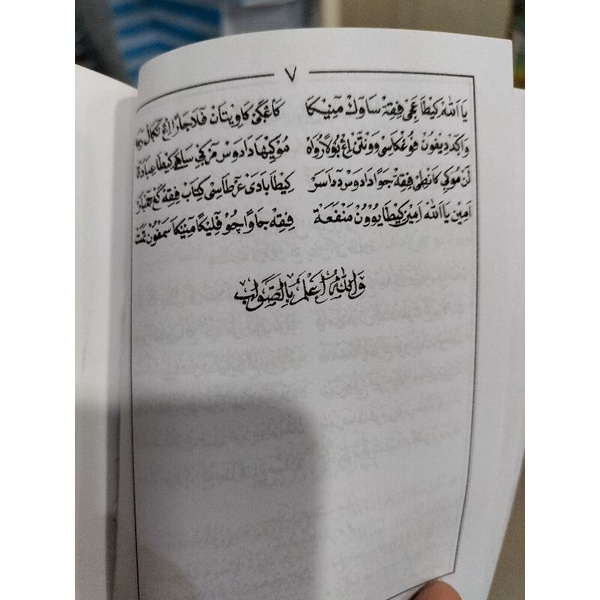 ٧
يا الله كيطا عجي فقه ساوك منيكا كاعكي كاويتان فلاجاراع
واكد ديفون فوعكاسي وونتن اع بولارواه موكيها دادوس مركي ساهي كيطا عبادة
لن موكي كانطي فقه جوا دادوس دسر كيطا بادي عرطاسي كتاب فقه كع
امين يا الله امين كيطا يوون منفعة فقه جاوا چوفليكا منيكا سمفون تمت
والله أعلم بالصواب